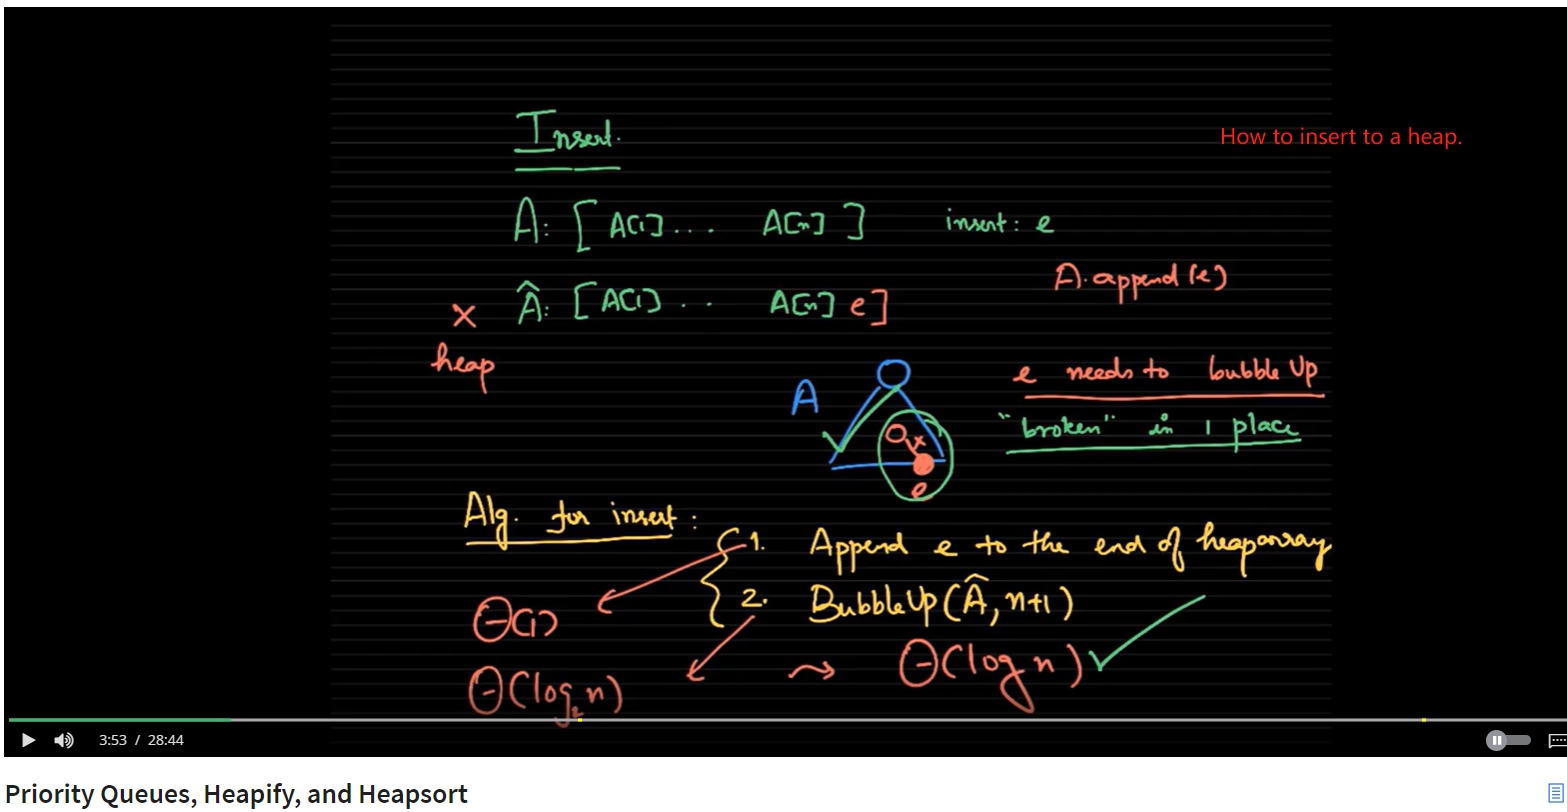 Insert.
How to insert to a heap.
A: [ A[1] ... A[n] ] insert: e
A.append(e)
x Â: [ A[1] .. A[n] e ]
heap
A
e needs to bubble Up
"broken" in 1 place
x
e
Alg. for insert:
1. Append e to the end of heaparray
2. BubbleUp(Â, n+1)
Θ(1)
Θ(log₂n) ⇝ Θ(log n) ✓
3:53 / 28:44
Priority Queues, Heapify, and Heapsort